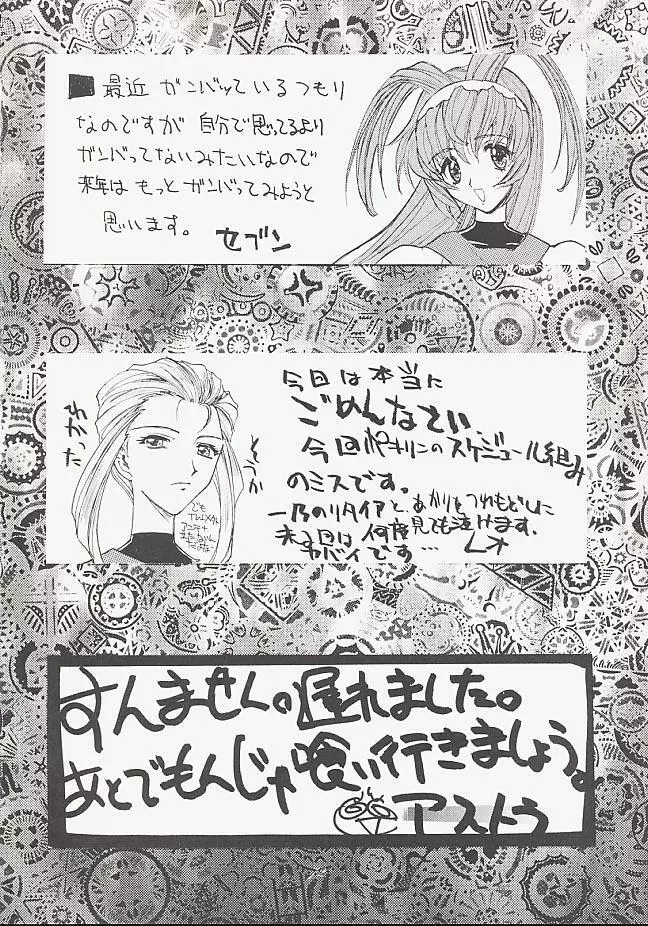 ■最近 ガンバッているつもり
なのですが 自分で思ってるより
ガンバってないみたいなので
来年は もっと ガンバってみようと
思います。 セブン
今回は本当に
ごめんなさい
今回のスケジュール組み
のミスです。
一乃のリタイアと、あかりをつれもどしに
来る回は 何度見ても泣けます。
ヤバイです…
すんません。遅れました。
あとでもんじゃ喰い行きましょう。
アストラ